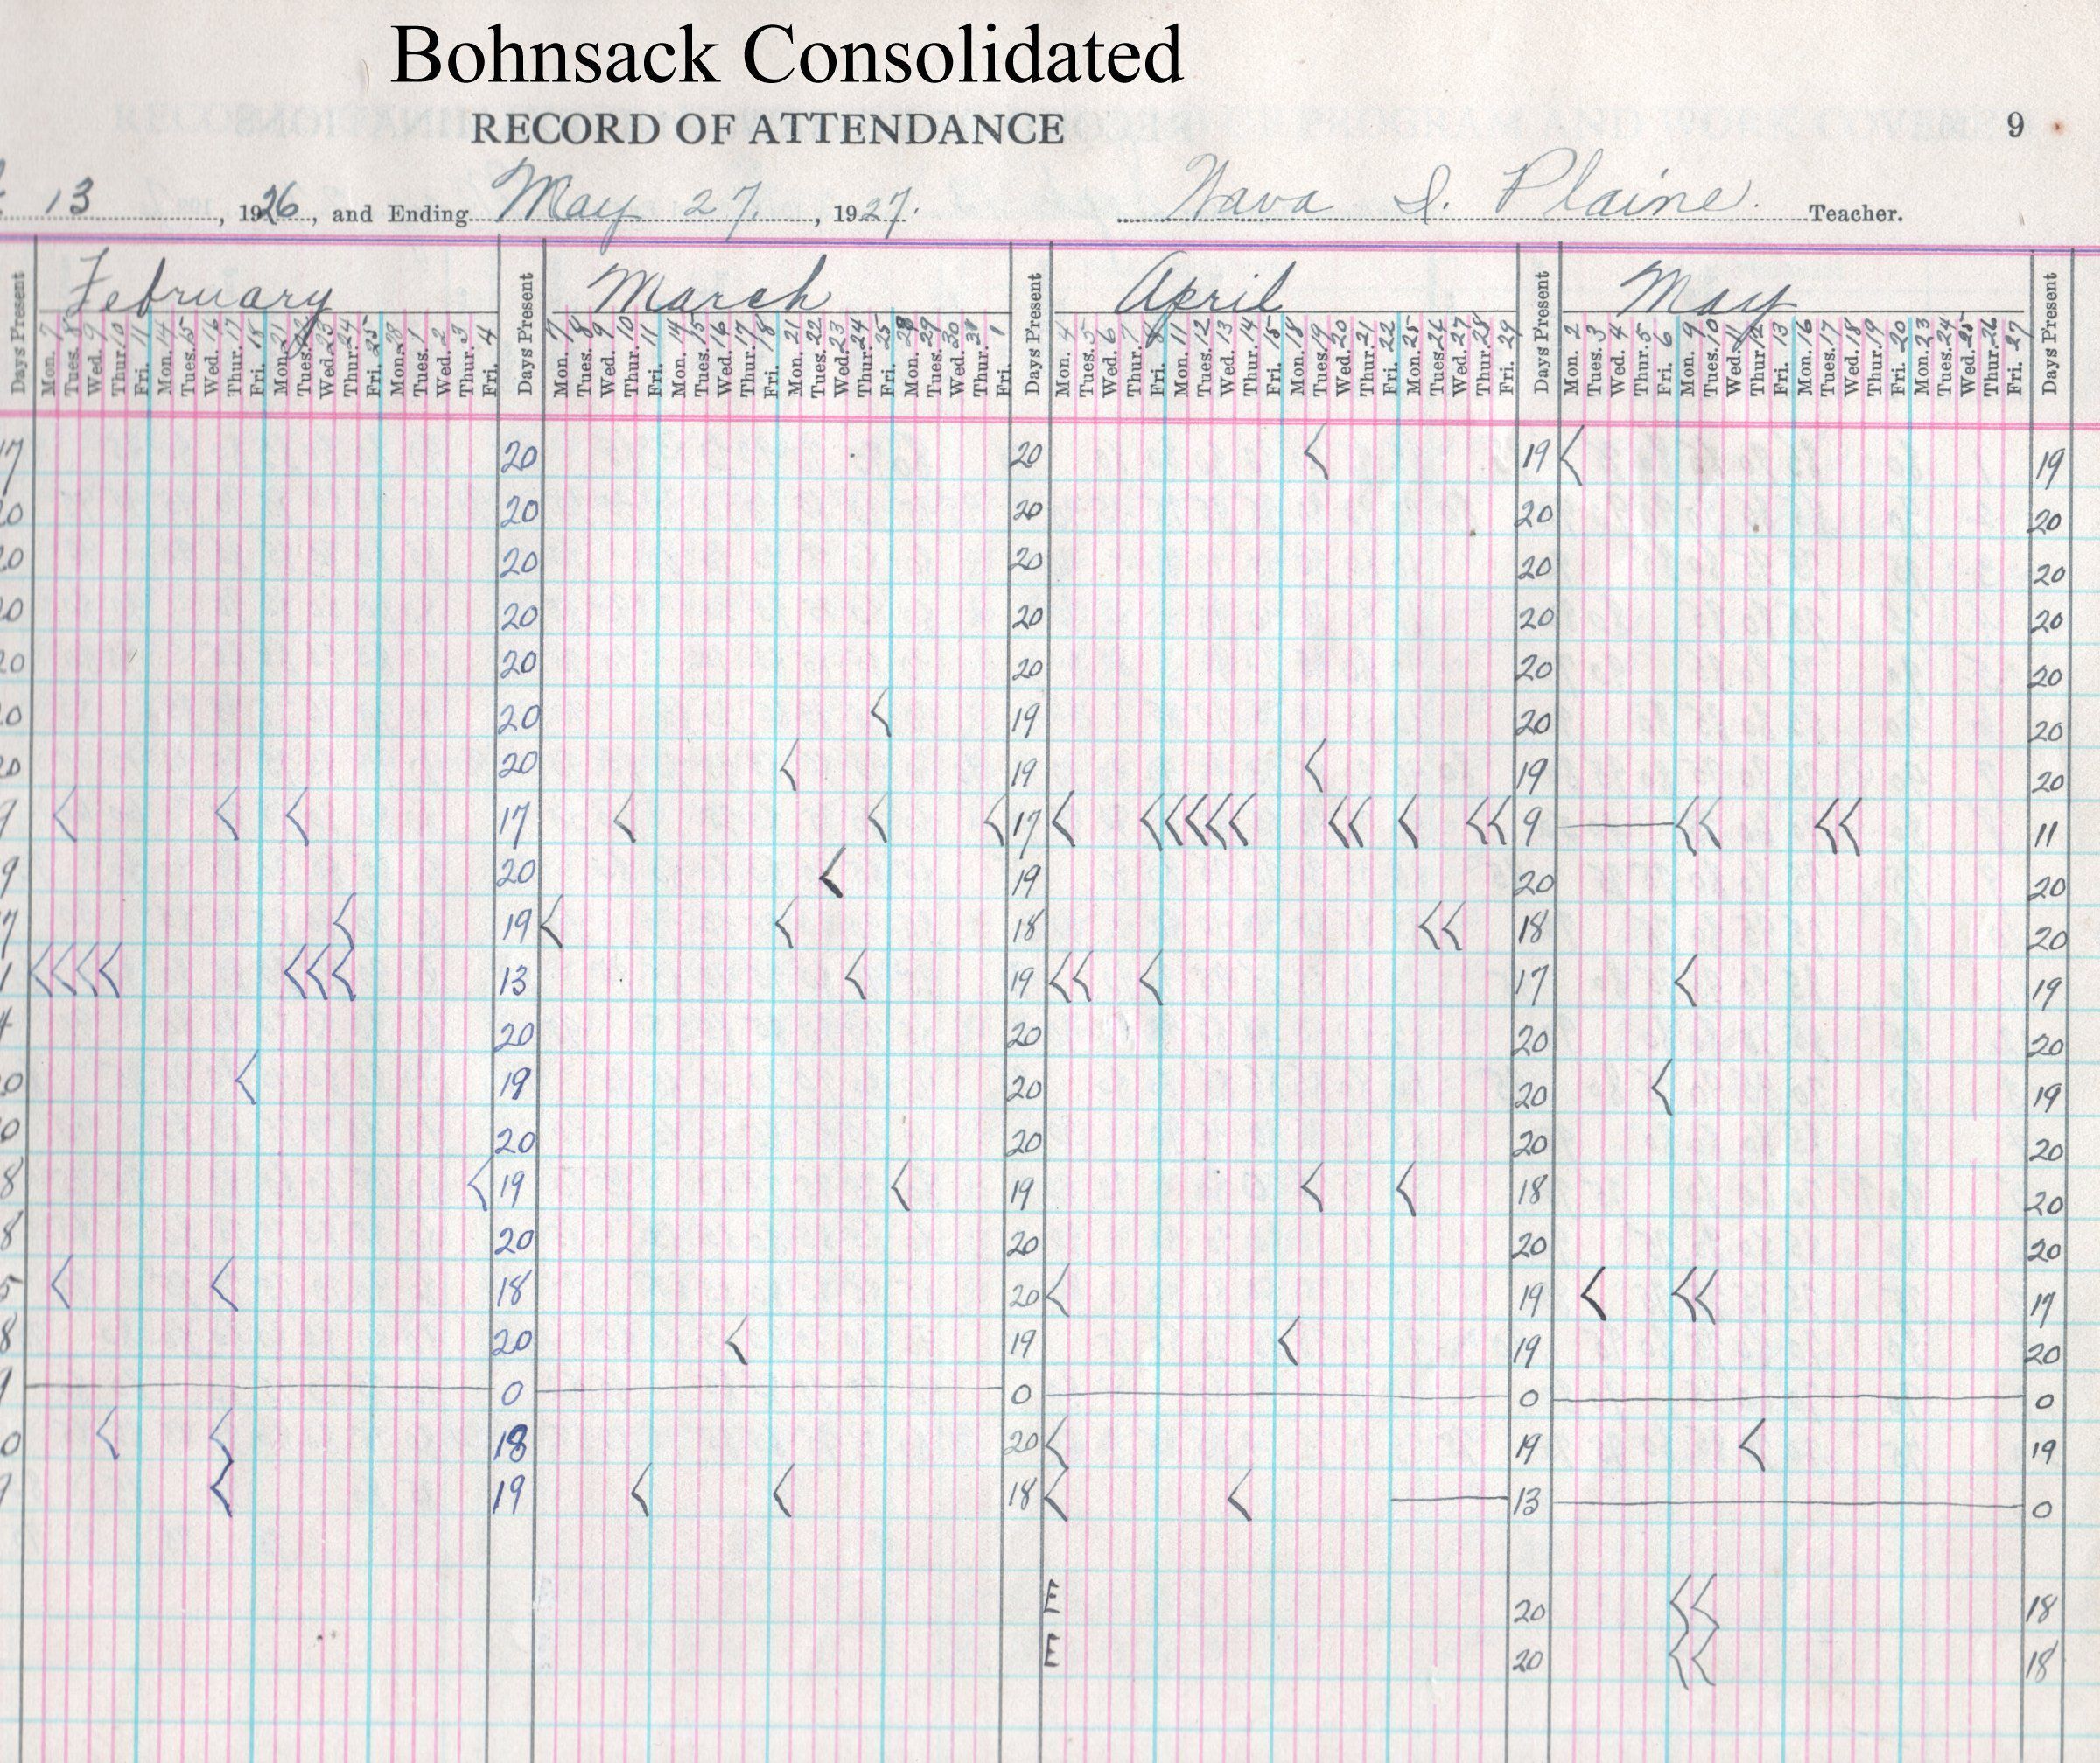 Bohnsack Consolidated
RECORD OF ATTENDANCE 9
13, 1926, and Ending May 27, 1927. Nava I. Plaine. Teacher.
Days Present February Days Present March Days Present April Days Present May Days Present
Mon. 7 Tues. 8 Wed. 9 Thur. 10 Fri. 11 Mon. 14 Tues. 15 Wed. 16 Thur. 17 Fri. 18 Mon. 21 Tues. 22 Wed. 23 Thur. 24 Fri. 25 Mon. 28 Tues. 1 Wed. 2 Thur. 3 Fri. 4 Mon. 7 Tues. 8 Wed. 9 Thur. 10 Fri. 11 Mon. 14 Tues. 15 Wed. 16 Thur. 17 Fri. 18 Mon. 21 Tues. 22 Wed. 23 Thur. 24 Fri. 25 Mon. 28 Tues. 29 Wed. 30 Thur. 31 Fri. 1 Mon. 4 Tues. 5 Wed. 6 Thur. 7 Fri. 8 Mon. 11 Tues. 12 Wed. 13 Thur. 14 Fri. 15 Mon. 18 Tues. 19 Wed. 20 Thur. 21 Fri. 22 Mon. 25 Tues. 26 Wed. 27 Thur. 28 Fri. 29 Mon. 2 Tues. 3 Wed. 4 Thur. 5 Fri. 6 Mon. 9 Tues. 10 Wed. 11 Thur. 12 Fri. 13 Mon. 16 Tues. 17 Wed. 18 Thur. 19 Fri. 20 Mon. 23 Tues. 24 Wed. 25 Thur. 26 Fri. 27
17 20 20 19 19
20 20 20 20 20
20 20 20 20 20
20 20 20 20 20
20 20 20 20 20
20 20 19 20 20
20 20 19 19 20
9 17 17 9 11
9 20 19 20 20
7 19 18 18 20
1 13 19 17 19
4 20 20 20 20
20 19 20 20 19
0 20 20 20 20
8 19 19 18 20
8 20 20 20 20
5 18 20 19 17
8 20 19 19 20
0 0 0 0
0 18 20 19 19
9 19 18 13 0
E 20 18
E 20 18